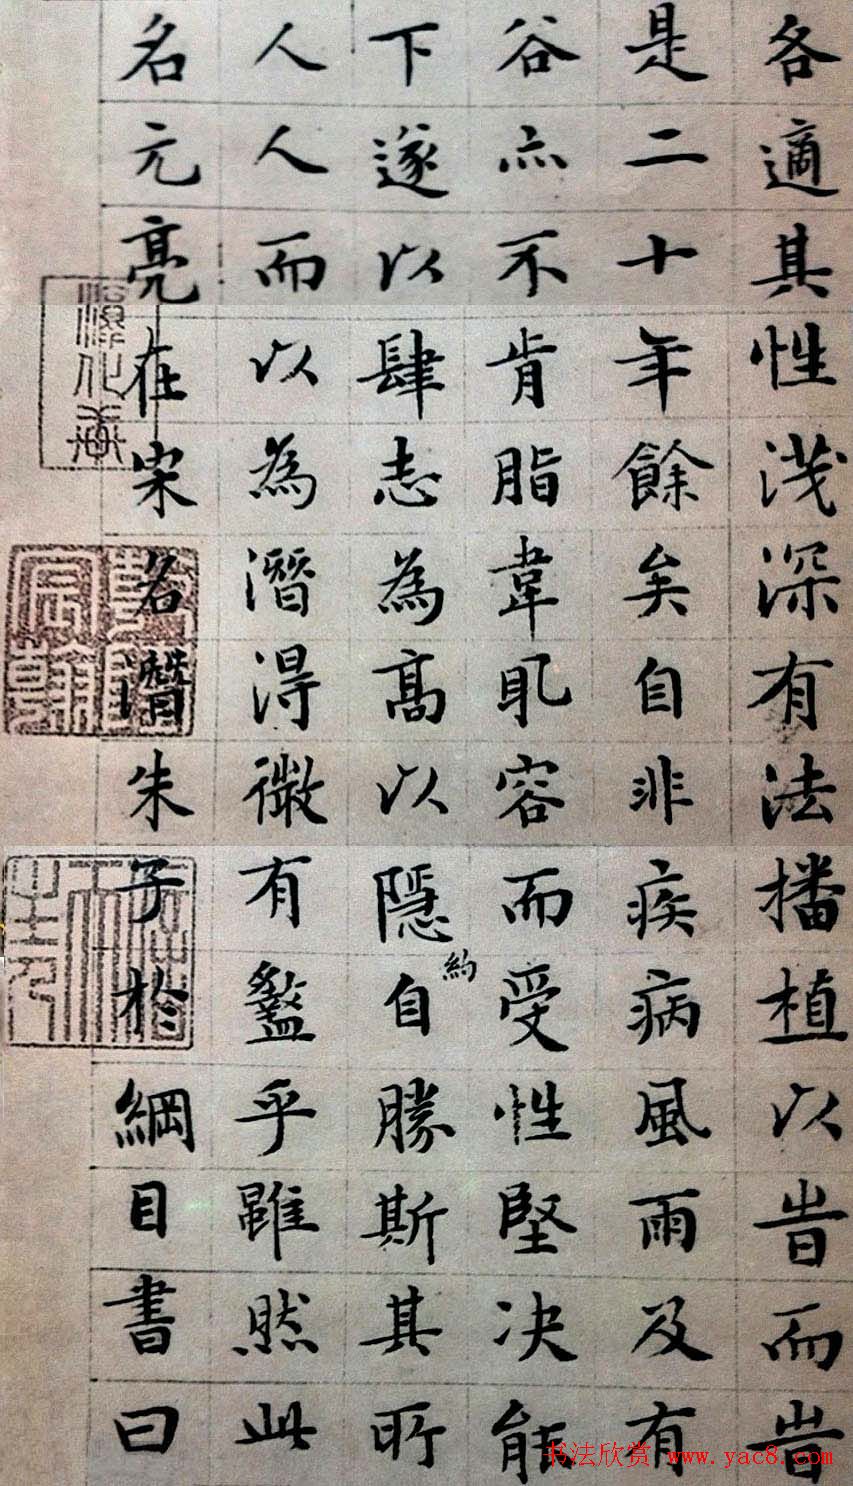 各適其性浅深有法播植以旹而旹
是二十年餘矣自非疾病風雨及有
谷亦不肯脂韋乩容而受性堅决能
下遂以肆志為髙以隱自勝斯其所
約
人人而以為潛淂微有盭乎雖然此
名元亮在宋名潛朱子於綱目書曰
书法欣赏 www.yac8.com